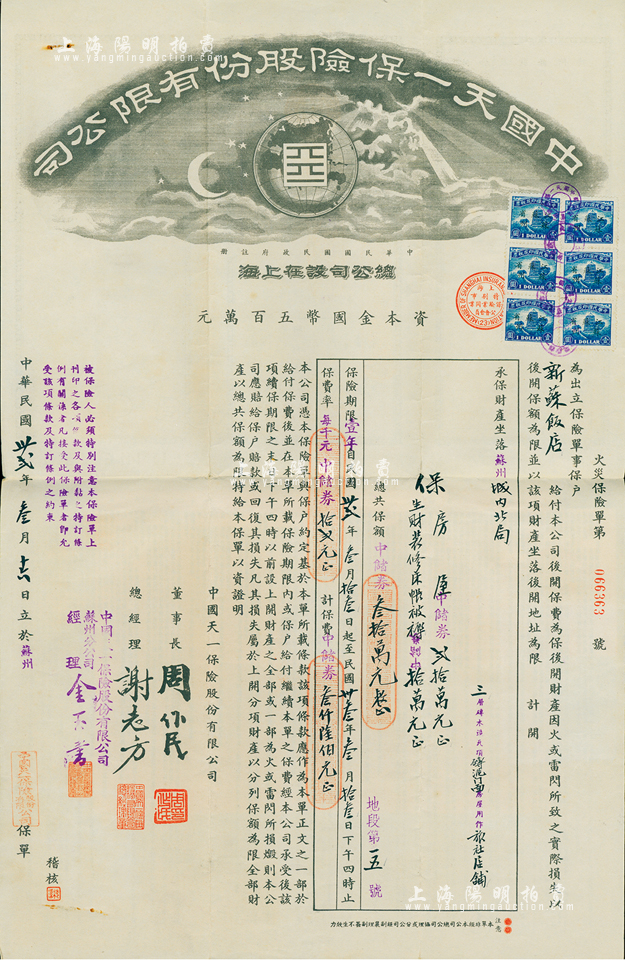 上海陽明拍賣
www.yangmingauction.com
中國天一保險股份有限公司
中華民國國民政府註冊
總公司設在上海
資本金國幣五百萬元
1 DOLLAR
1 DOLLAR
1 DOLLAR
1 DOLLAR
1 DOLLAR
1 DOLLAR
火災保險單第 066363 號
為出立保險單事保戶
新蘇飯店 給付本公司後開保費為保後開財產因火或雷閃所致之實際損失以
後開保額為限並以該項財產坐落後開地址為限 計開
承保財產坐落蘇州城內北局
保房屋中儲券貳拾萬元正
生財裝修床帳被褥
拾萬元正
總共保額中儲券叁拾萬元整
地段第五號
保險期限壹年自民國卅貳年叁月拾叁日起至民國卅叁年叁月拾叁日下午四時止
保費率每千元中儲券拾貳元正 計保費中儲券叁仟陸佰元正
本公司憑本保險單與保戶約定基於本單所載條款該項條款應作為本單正文之一部於
給付保費後並在本單所載保險期限內或保戶給付繼續本單之保費經本公司承受後該
項續保期限之末日下午四時以前設上開財產之全部或一部為火或雷閃所損燬則本公
司應賠給保戶賠款或回復其損失凡其損失屬於上開分項財產以分列保額為限全部財
產以總共保額為限特給本保單以資證明
中國天一保險股份有限公司
董事長 周作民
總經理 謝志方
中國天一保險股份有限公司
蘇州分公司
經理
被保險人必須特別注意本保險單上
刊印之各項條款及與附黏之特訂條
例有關係者凡接受此保險單者即允
受該項條款及特訂條例之約束
中華民國卅貳年叁月 日立於蘇州
保單
稽核
注意
本單非經本公司總公司協理或分公司經副襄理副簽不生效力
上海陽明拍賣
www.yangmingauction.com